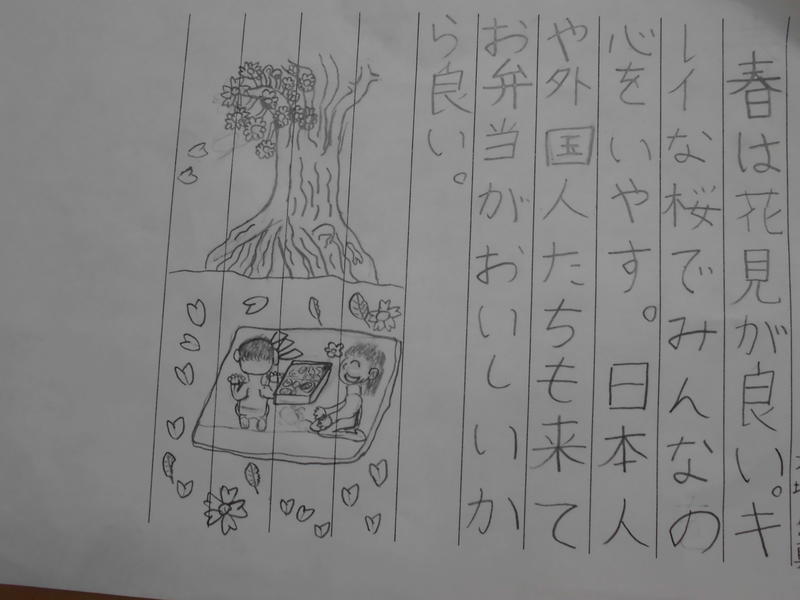 春は花見が良い。キ
レイな桜でみんなの
心をいやす。日本人
や外国人たちも来て
お弁当がおいしいか
ら良い。